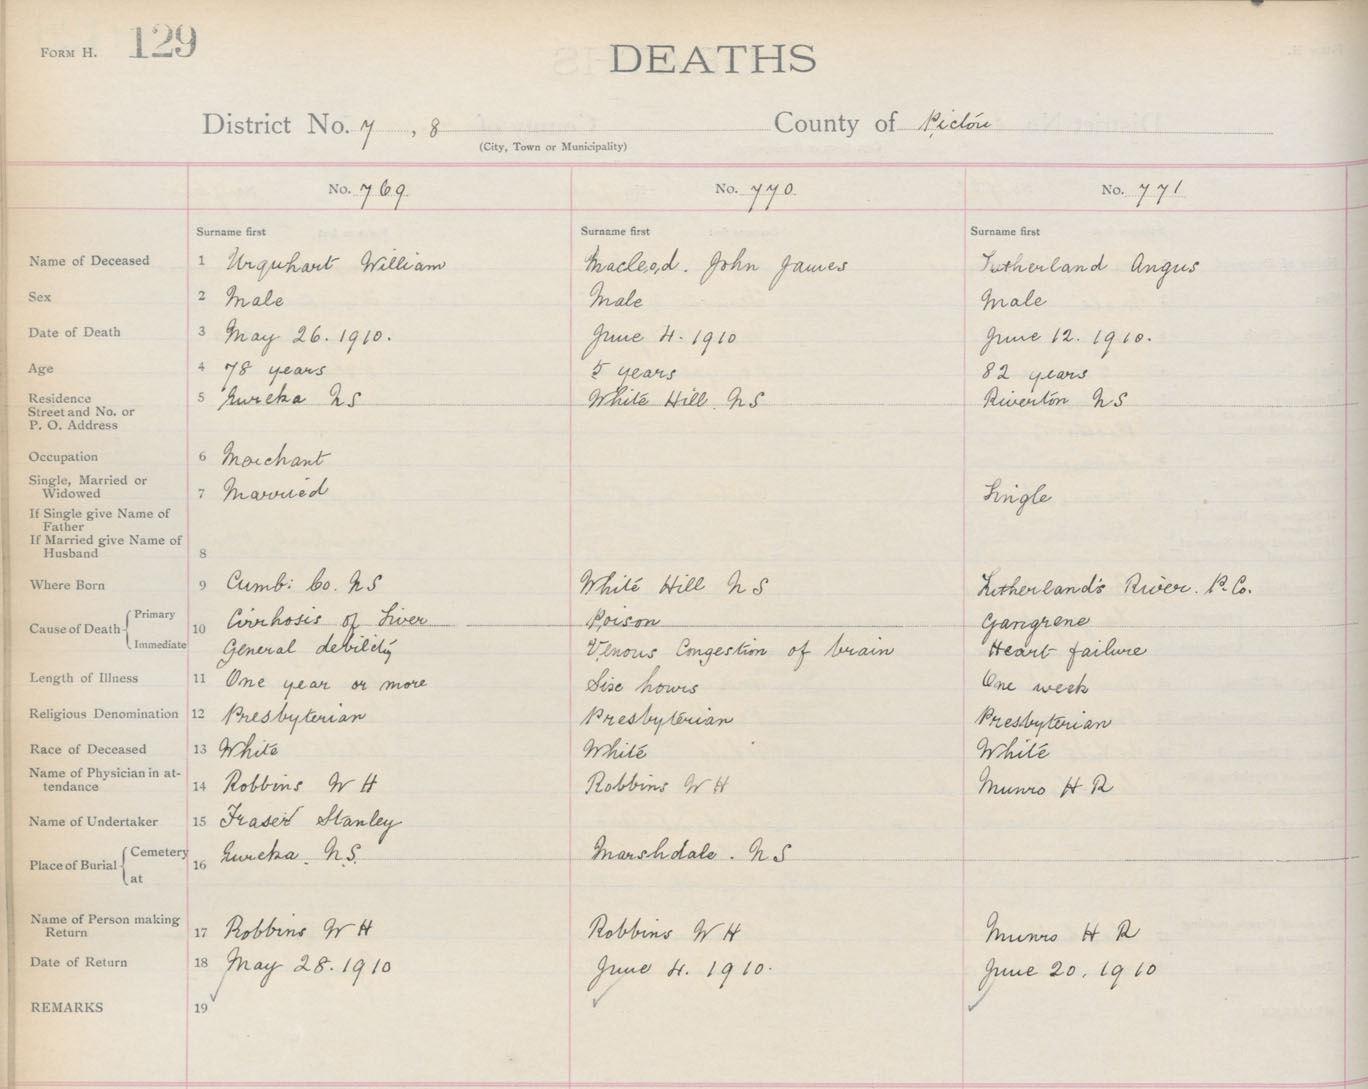 FORM H. 129
DEATHS
District No. 7, 8 County of Pictou
(City, Town or Municipality)
No. 769 No. 770 No. 771
Surname first Surname first Surname first
Name of Deceased 1 Urquhart William Macleod. John James Sutherland Angus
Sex 2 Male Male Male
Date of Death 3 May 26. 1910. June 4. 1910 June 12. 1910.
Age 4 78 years 5 years 82 years
Residence 5 Eureka NS White Hill. NS Riverton NS
Street and No. or
P. O. Address
Occupation 6 Merchant
Single, Married or
Widowed 7 Married Single
If Single give Name of
Father
If Married give Name of
Husband 8
Where Born 9 Cumb: Co. NS White Hill NS Sutherland's River. P. Co.
Cause of Death Primary 10 Cirrhosis of Liver Poison Gangrene
Immediate General debility Venous Congestion of brain Heart failure
Length of Illness 11 One year or more Six hours One week
Religious Denomination 12 Presbyterian Presbyterian Presbyterian
Race of Deceased 13 White White White
Name of Physician in at-
tendance 14 Robbins W H Robbins W H Munro H R
Name of Undertaker 15 Fraser Stanley
Place of Burial Cemetery 16 Eureka. N.S. Marshdale. NS
at
Name of Person making
Return 17 Robbins W H Robbins W H Munro H R
Date of Return 18 May 28. 1910 June 4. 1910. June 20. 1910
REMARKS 19